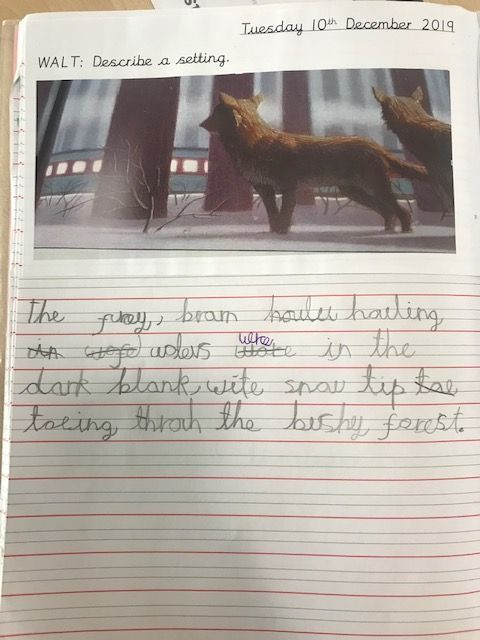 Tuesday 10th December 2019
WALT: Describe a setting.
the furey, brawn howled howling
in wofe wolevs were in the
dark blank, wite snow tip toe
toeing throuh the bushy forest.